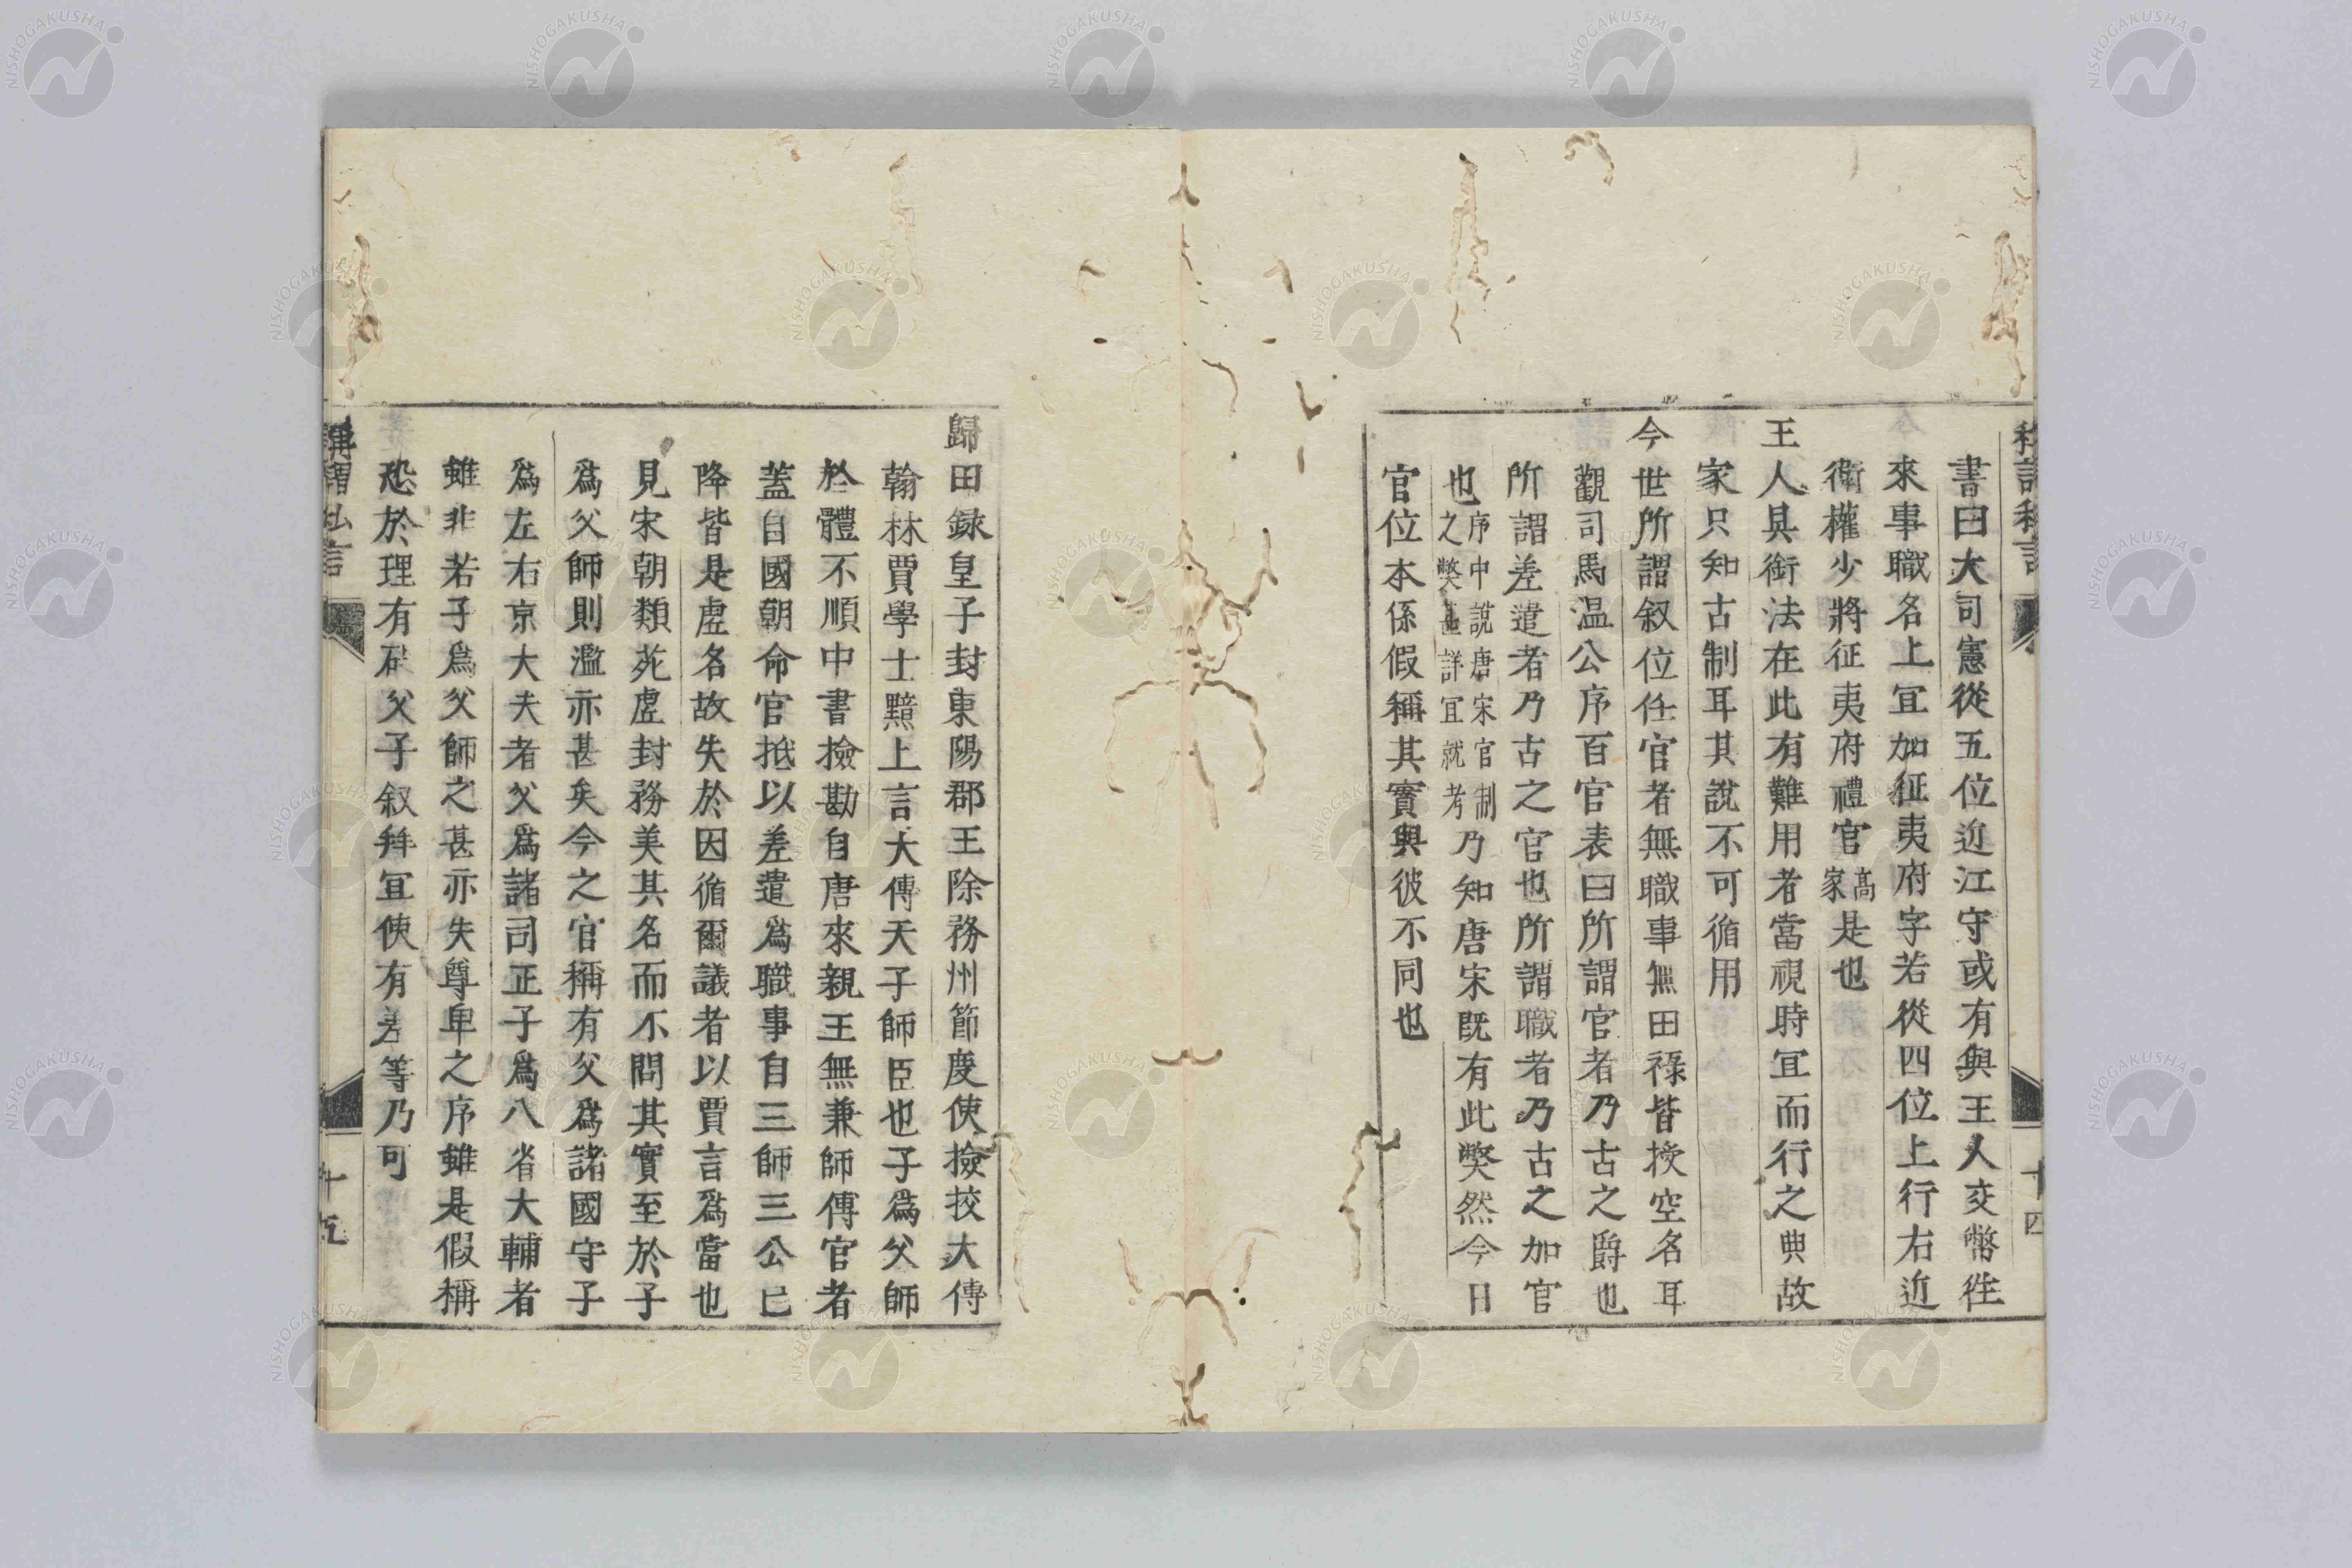 書曰大司憲從五位近江守或有與王人交幣徃
來事職名上冝加征夷府字若從四位上行右近
衛權少將征夷府禮官高家是也
王人具銜法在此有難用者當視時冝而行之典故
家只知古制耳其說不可循用
今世所謂叙位任官者無職事無田祿皆授空名耳
觀司馬温公序百官表曰所謂官者乃古之爵也
所謂差遣者乃古之官也所謂職者乃古之加官
也序中說唐宋官制之獘甚詳冝就考乃知唐宋既有此獘然今日
官位本係假稱其實與彼不同也
十四
歸田録皇子封東陽郡王除婺州節度使撿挍大傳
翰林賈學士黯上言大傳天子師臣也子為父師
於體不順中書撿勘自唐來親王無兼師傳官者
蓋自國朝命官抵以差遣為職事自三師三公已
降皆是虛名故失於因循爾議者以賈言為當也
見宋朝類苑虛封務美其名而不問其實至於子
為父師則濫亦甚矣今之官稱有父為諸國守子
為左右京大夫者父為諸司正子為八省大輔者
雖非若子為父師之甚亦失尊卑之序雖是假稱
恐於理有碍父子叙拜冝使有差等乃可
稱謂私言
十五
NISHOGAKUSHA